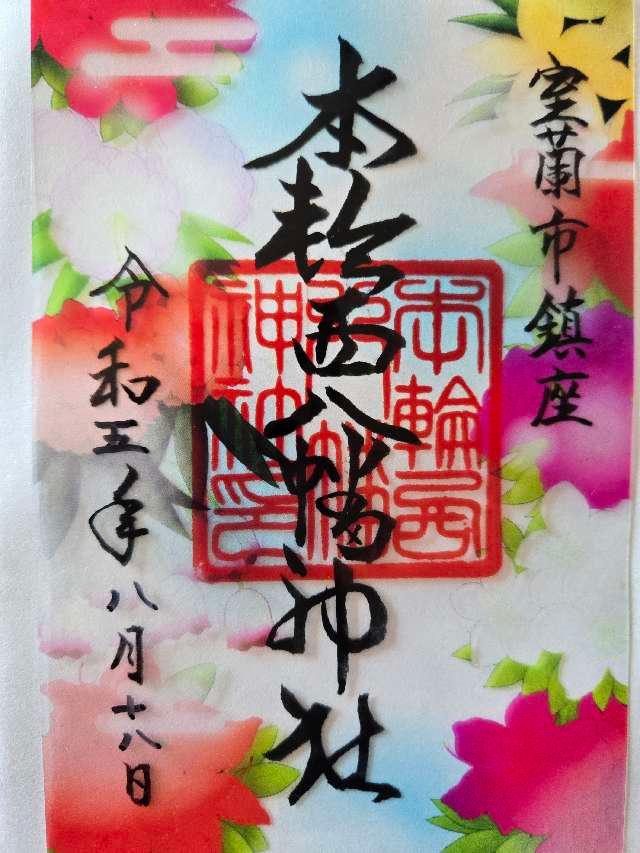 室蘭市鎮座
本輪西八幡神社
本輪西
八幡
神社印
令和五年八月十八日